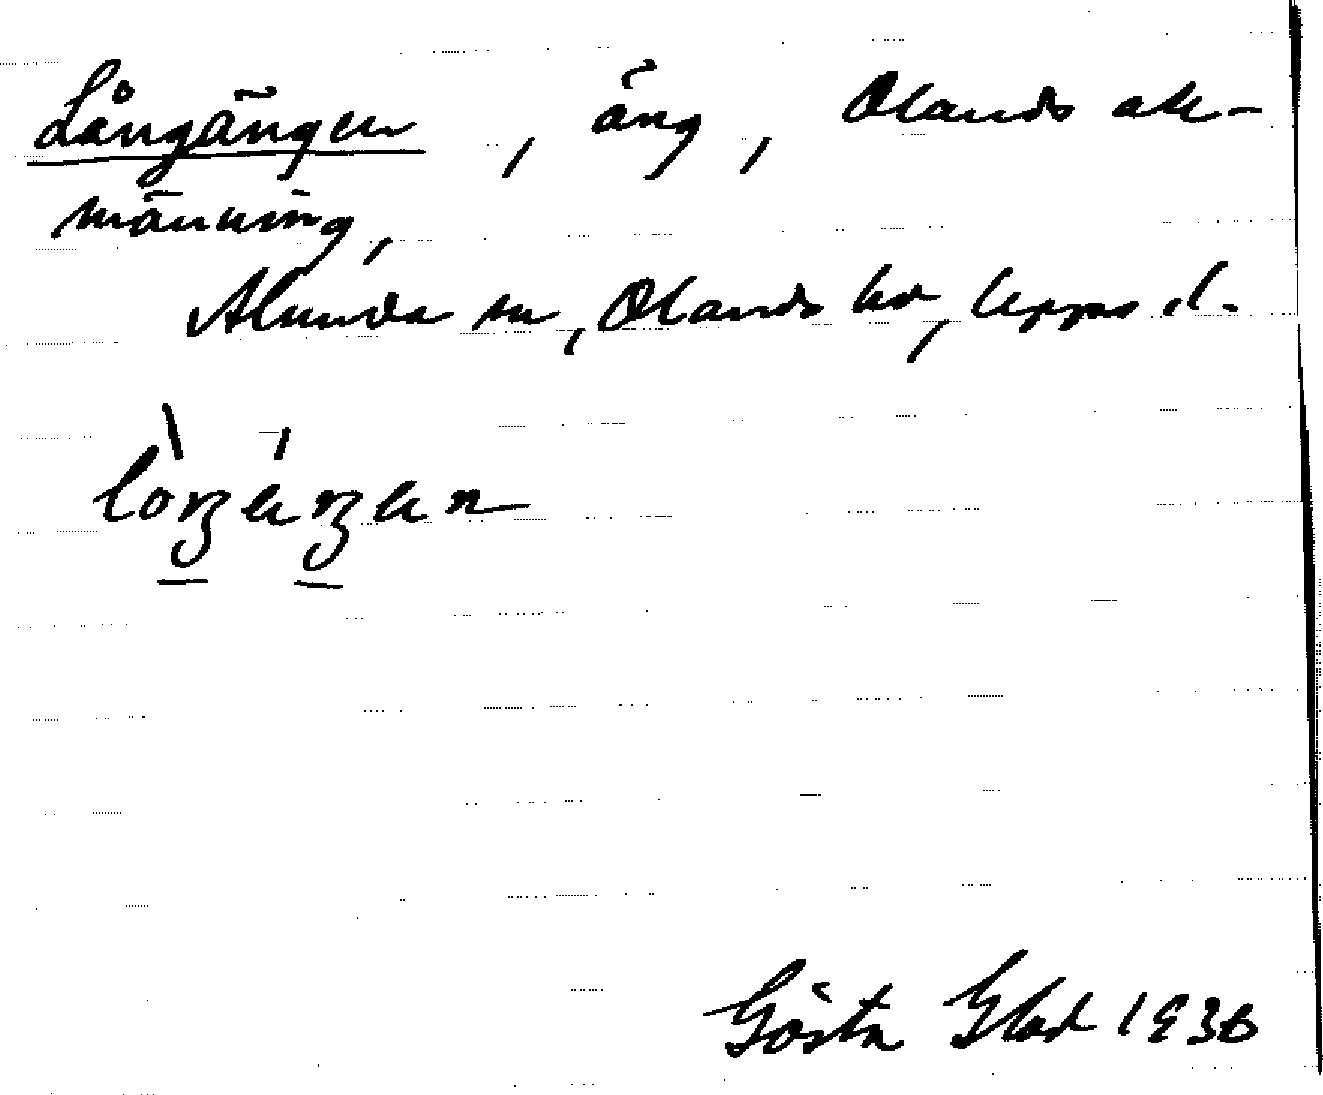 Långängen, äng, Olands all-
männing,
Alunda sn, Olands hd, Upps. l.
Gösta Glad 1936